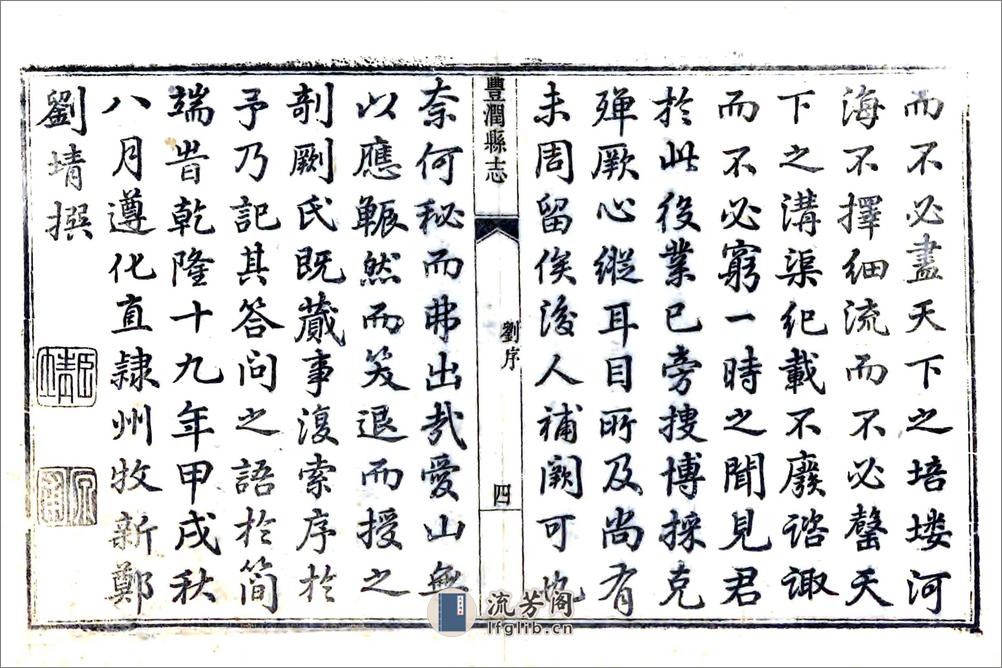 而不必盡天下之培塿河
海不擇細流而不必罄天
下之溝渠紀載不廢諮諏
而不必窮一時之聞見君
於此役業已旁搜博採克
殫厥心縱耳目所及尚有
未周留俟後人補闕可也
豐潤縣志
劉序
四
奈何秘而弗出哉愛山無
以應冁然而笑退而授之
剞劂氏既蕆事復索序於
予乃記其答問之語於簡
端旹乾隆十九年甲戌秋
八月遵化直隸州牧新鄭
劉靖撰
臣靖
流芳阁
lfglib.cn